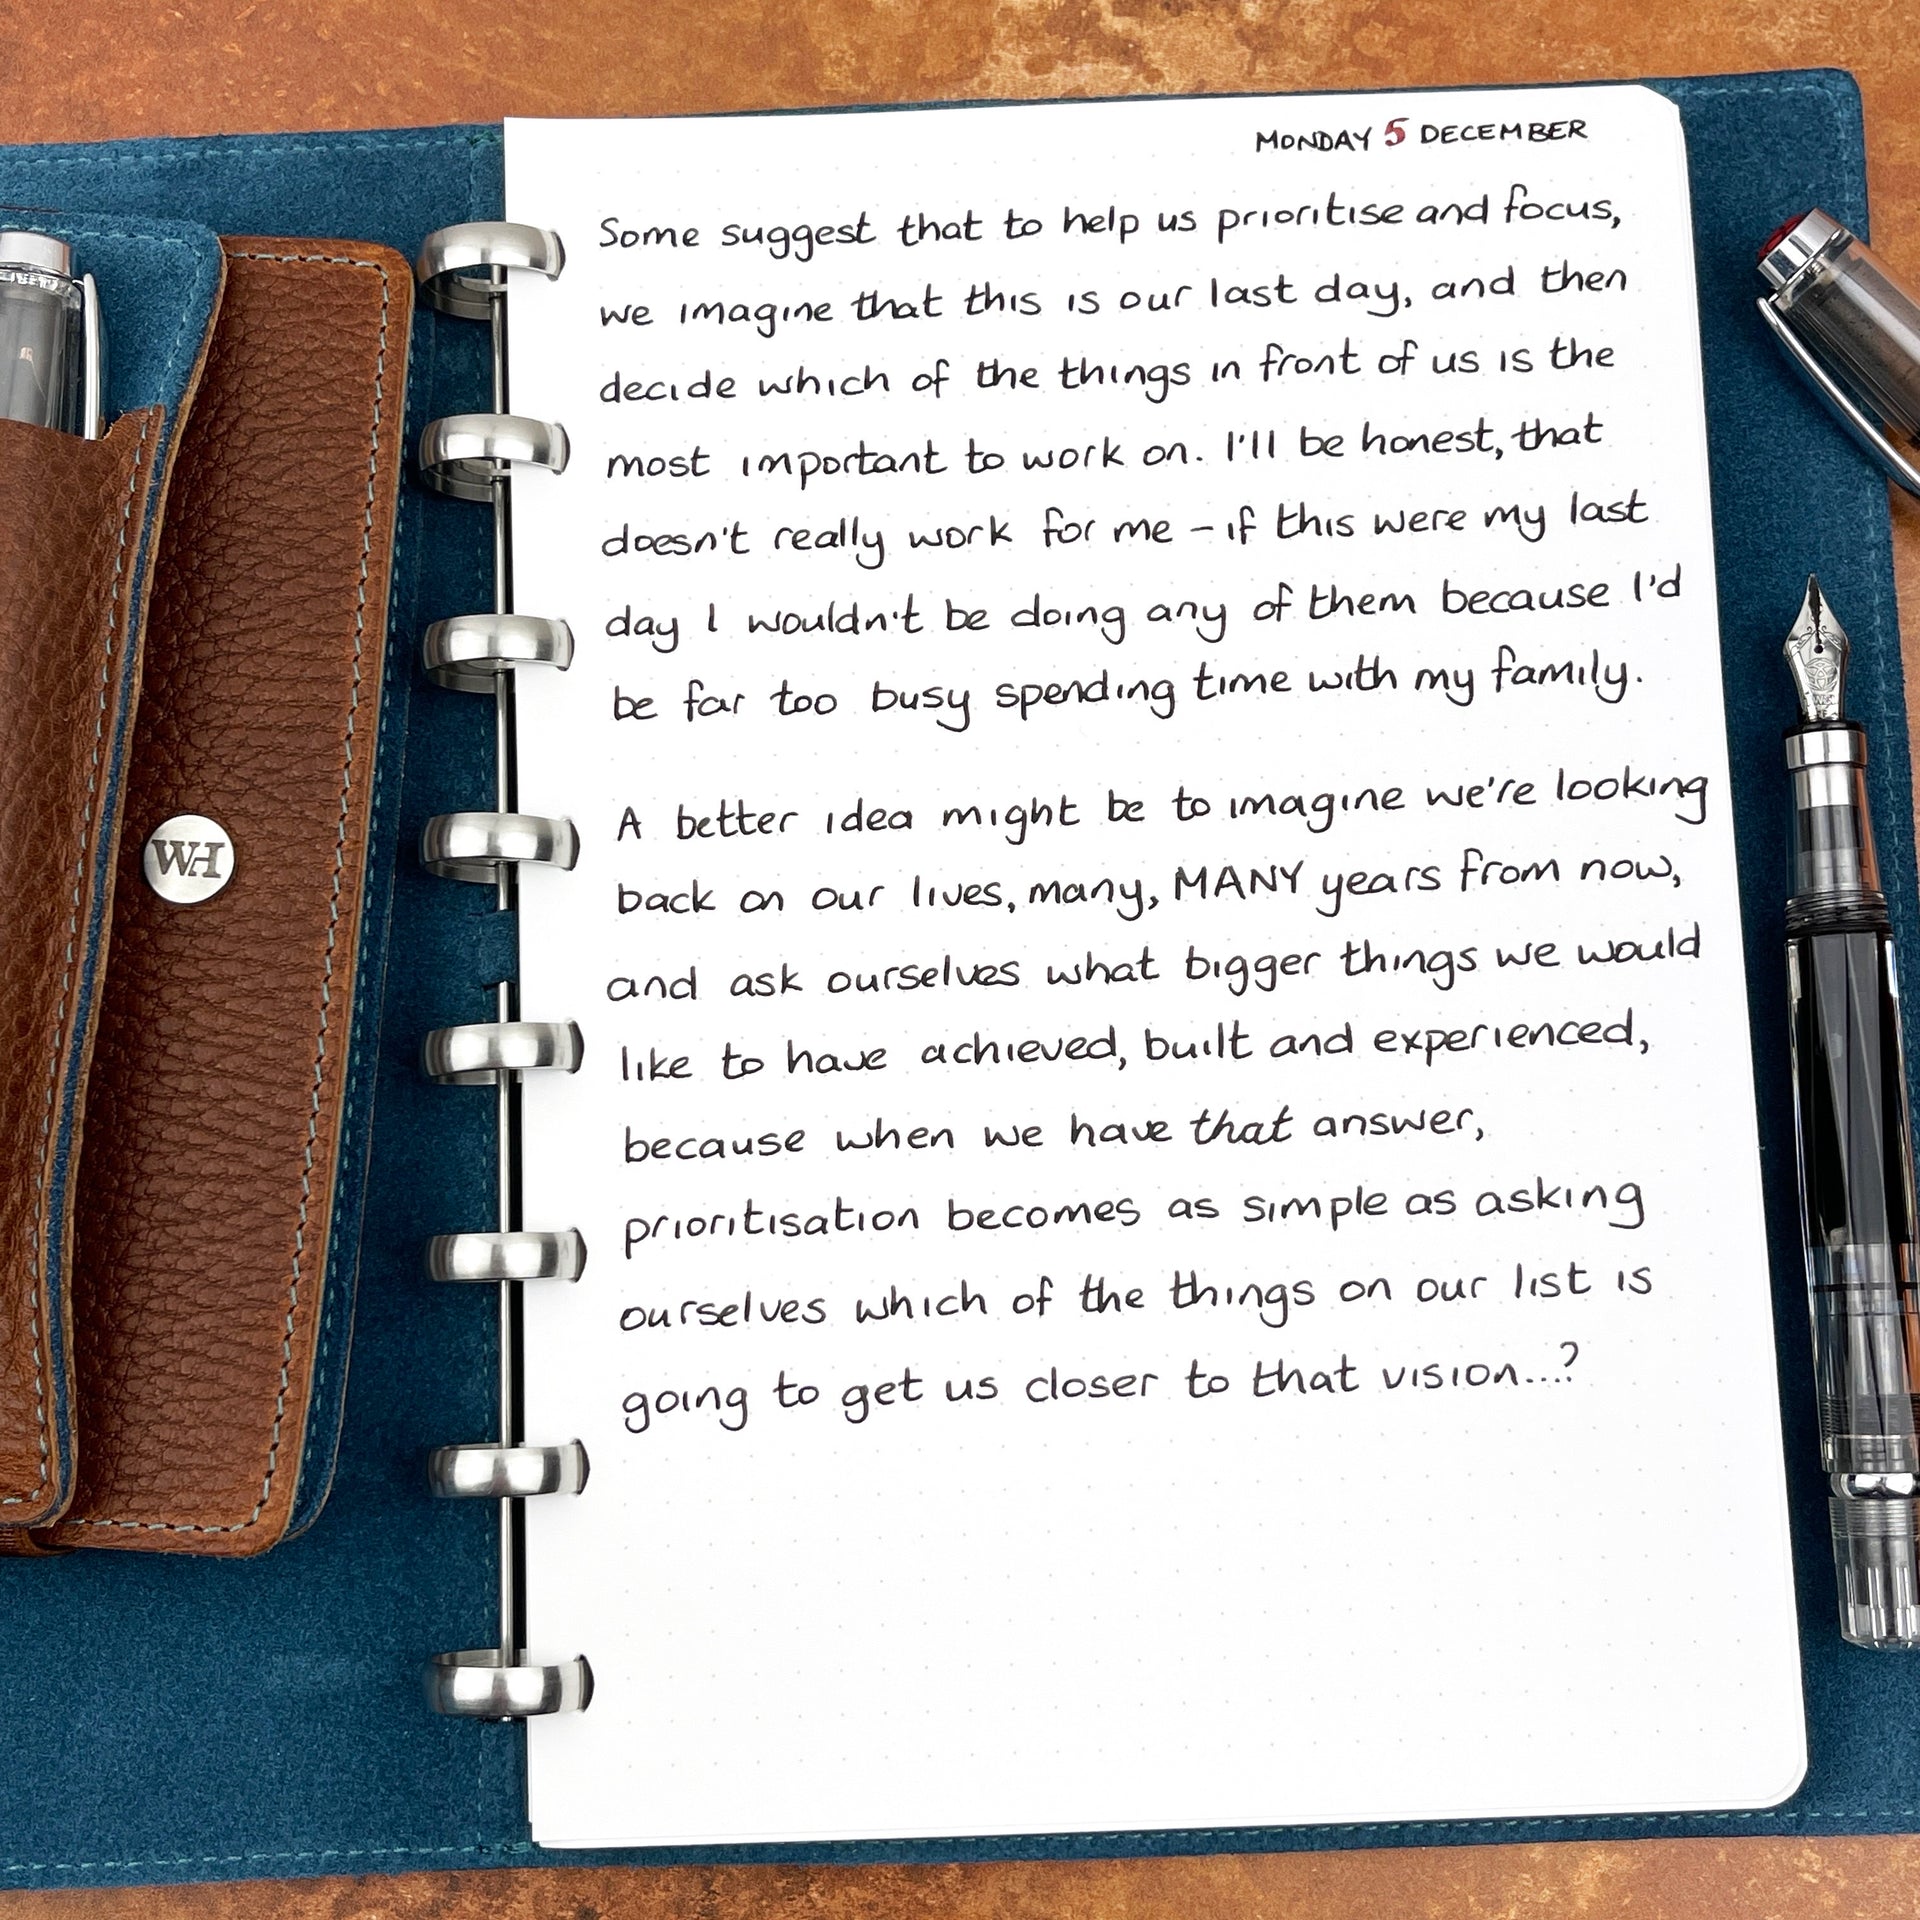 MONDAY 5 DECEMBER
Some suggest that to help us prioritise and focus,
we imagine that this is our last day, and then
decide which of the things in front of us is the
most important to work on. I'll be honest, that
doesn't really work for me – if this were my last
day I wouldn't be doing any of them because I'd
be far too busy spending time with my family.
A better idea might be to imagine we're looking
back on our lives, many, MANY years from now,
and ask ourselves what bigger things we would
like to have achieved, built and experienced,
because when we have that answer,
prioritisation becomes as simple as asking
ourselves which of the things on our list is
going to get us closer to that vision...?
WH